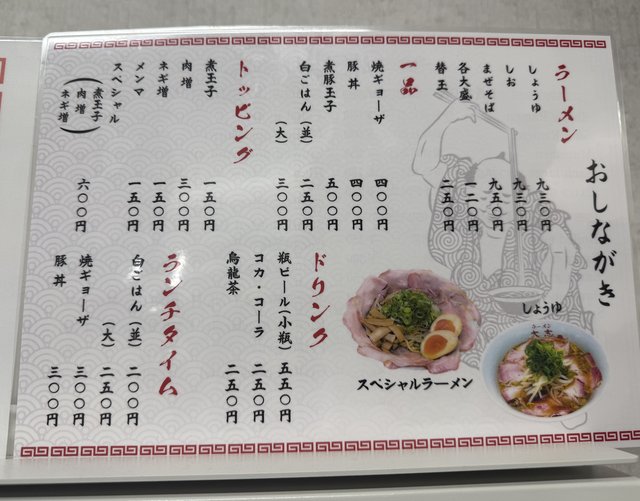 おしながき
ラーメン
しょうゆ 九三〇円
しお 九三〇円
まぜそば 九五〇円
各大盛 一二〇円
替玉 二五〇円
一品
焼ギョーザ 四〇〇円
豚丼 四〇〇円
煮豚玉子 五〇〇円
白ごはん(並) 二五〇円
(大) 三〇〇円
トッピング
煮玉子 一五〇円
肉増 三〇〇円
ネギ増 一五〇円
メンマ 一五〇円
スペシャル
(煮玉子
肉増
ネギ増) 六〇〇円
ドリンク
瓶ビール(小瓶) 五五〇円
コカ・コーラ 二五〇円
烏龍茶 二五〇円
ランチタイム
白ごはん(並) 二〇〇円
(大) 二五〇円
焼ギョーザ 三〇〇円
豚丼 三〇〇円
しょうゆ
スペシャルラーメン